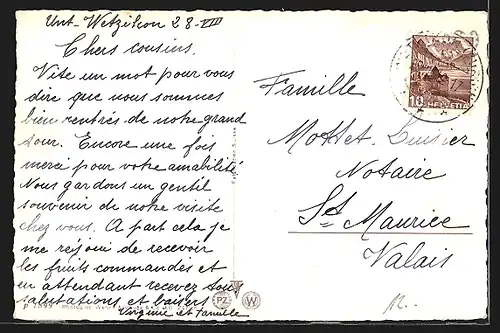 Unt-Wetzikon 28-VIII
Chers cousins.
Vite un mot pour vous
dire que nous sommes
bien rentrés de notre grand
tour. Encore une fois
merci pour votre amabilité
Nous gardons un gentil
souvenir de notre visite
chez vous. A part cela je
me réjoui de recevoir
les fruits commandés et
en attendant recevez
salutations et baisers
Virginie et Famille
Famille
Mottet-
Notaire
St Maurice
Valais
10
HELVETIA
PZ
W